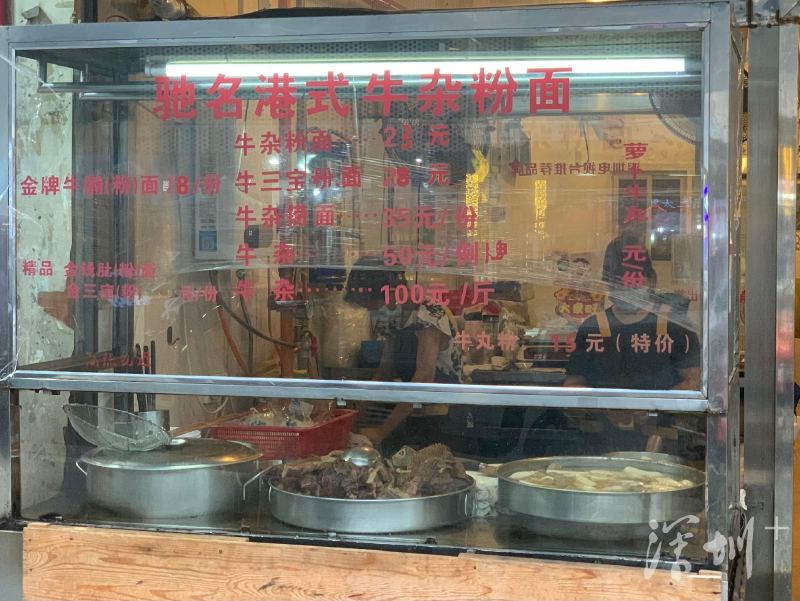 驰名港式牛杂粉面
牛杂粉面……23元
金牌牛腩(粉)面 /8/份
牛三宝粉面 28 元
牛杂捞面……35元/份
牛杂……50元/例牌
精品 金钱肚(粉)面
牛三宝(粉 /份
牛杂………100元/斤
萝卜牛丸 元份
深圳电视台推荐品牌
牛丸粉 15元（特价）
深圳+